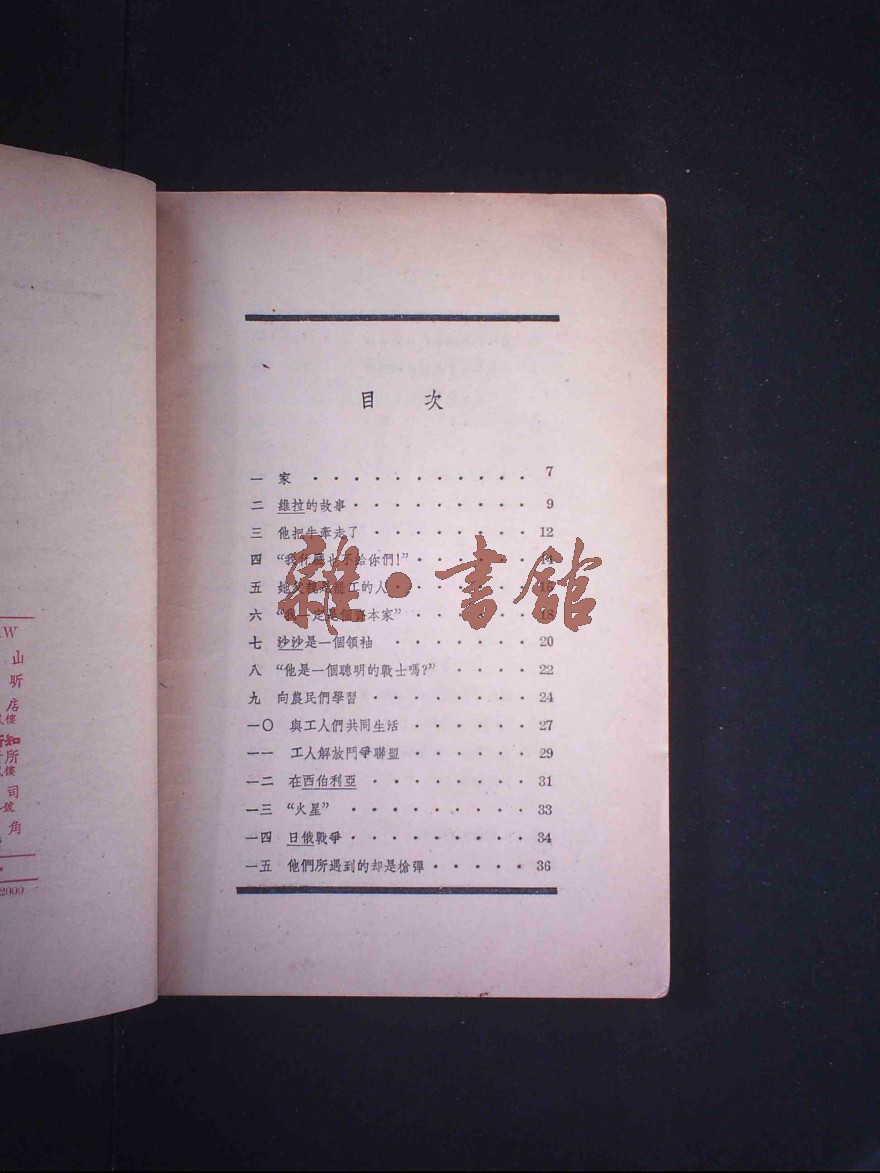 AW
山
昕
店
樓
新知
所
樓
司
號
角
2000
目 次
一 家 · · · · · · · · · · · 7
二 維拉的故事 · · · · · · · 9
三 他把牛牽走了 · · · · · · 12
四 “我什麼也不給你們!” · · · · · 14
五 她 工的人 · · · · ·
六 “我一定是個資本家” · · · · · 18
七 沙沙是一個領袖 · · · · · · 20
八 “他是一個聰明的戰士嗎?” · · · · 22
九 向農民們學習 · · · · · · · 24
一〇 與工人們共同生活 · · · · · 27
一一 工人解放鬥爭聯盟 · · · · · 29
一二 在西伯利亞 · · · · · · · 31
一三 “火星” · · · · · · · · 33
一四 日俄戰爭 · · · · · · · 34
一五 他們所遇到的却是槍彈 · · · · · 36
雜·書館